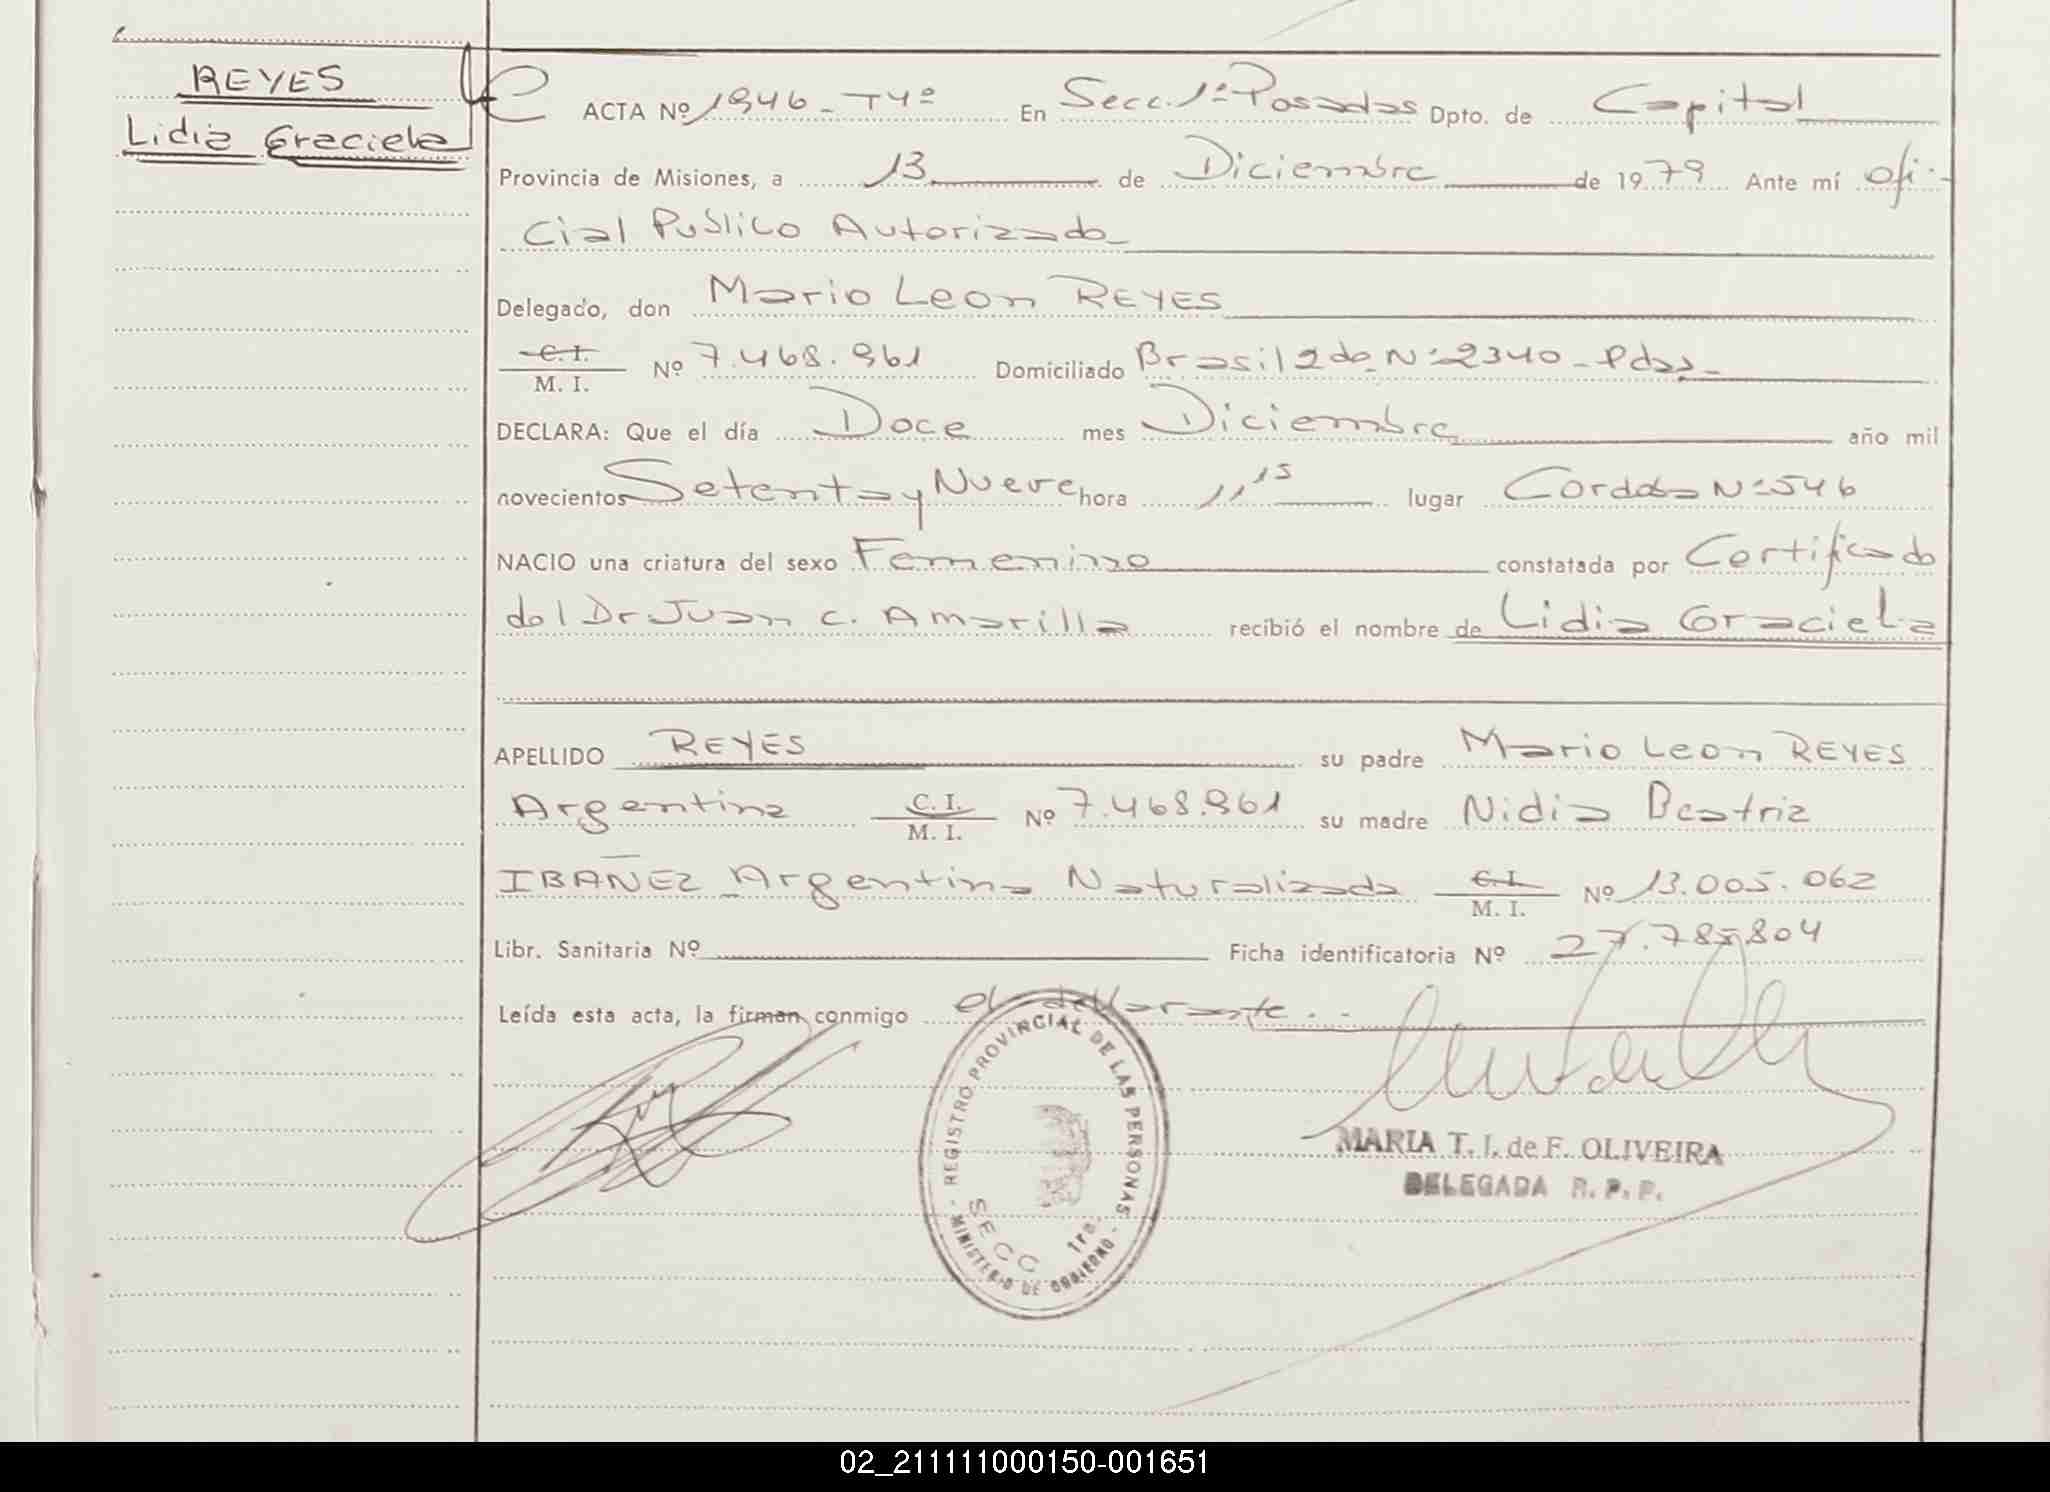 REYES
Lidia Graciela
ACTA Nº 1946 - Tº 4º En Secc. 1ª Posadas Dpto. de Capital
Provincia de Misiones, a 13 de Diciembre de 1979 Ante mí ofi-
cial Publico Autorizado
Delegado, don Mario Leon REYES
C. I.
M. I. Nº 7.468.961 Domiciliado Brasil 2do Nº 2340 - Pdas -
DECLARA: Que el día Doce mes Diciembre año mil
novecientos Setenta y Nueve hora 11,15 lugar Cordoba Nº 546
NACIO una criatura del sexo Femenino constatada por Certificado
del Dr Juan C. Amarilla recibió el nombre de Lidia Graciela
APELLIDO REYES su padre Mario Leon REYES
Argentina C. I.
M. I. Nº 7.468.961 su madre Nidia Beatriz
IBAÑEZ Argentina Naturalizada C. I.
M. I. Nº 13.005.062
Libr. Sanitaria Nº Ficha identificatoria Nº 27.785804
Leída esta acta, la firman conmigo el declarante . -
REGISTRO PROVINCIAL DE LAS PERSONAS
SECC 1ra.
MINISTERIO DE GOBIERNO
MARIA T. I. de F. OLIVEIRA
DELEGADA R. P. P.
02_211111000150-001651